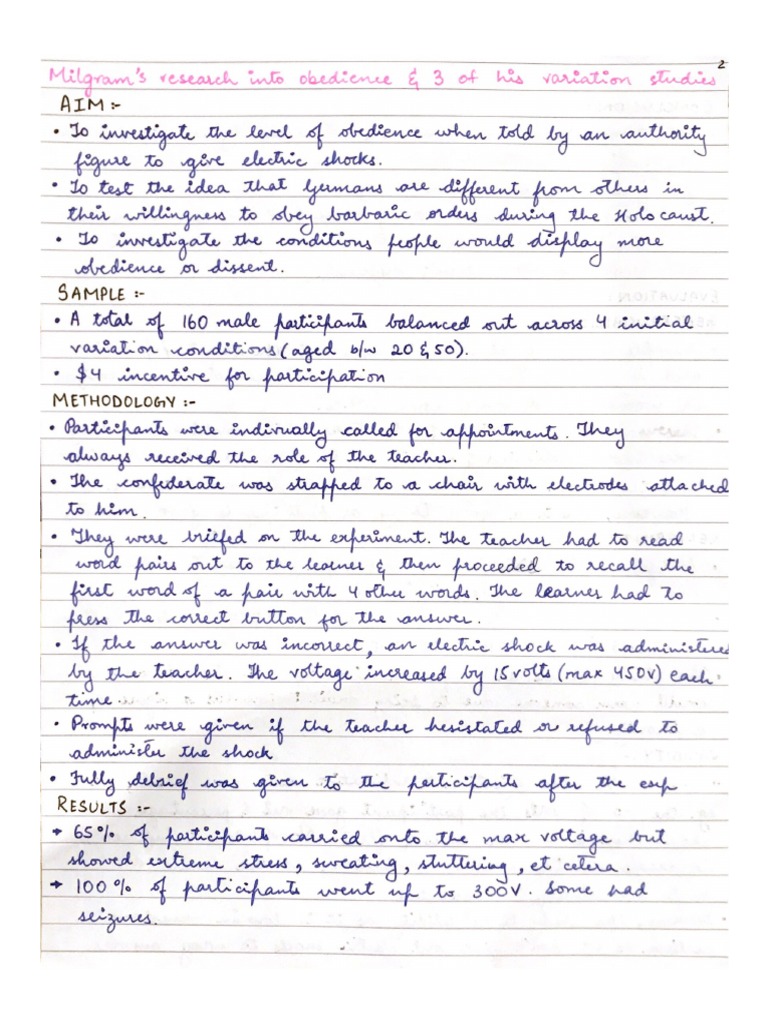 2
Milgram's research into obedience & 3 of his variation studies
AIM :-
• To investigate the level of obedience when told by an authority
figure to give electric shocks.
• To test the idea that Germans are different from others in
their willingness to obey barbaric orders during the Holocaust.
• To investigate the conditions people would display more
obedience or dissent.
SAMPLE :-
• A total of 160 male participants balanced out across 4 initial
variation conditions (aged b/w 20 & 50).
• $4 incentive for participation
METHODOLOGY :-
• Participants were indivually called for appointments. They
always received the role of the teacher.
• The confederate was strapped to a chair with electrodes attached
to him.
• They were briefed on the experiment. The teacher had to read
word pairs out to the learner & then proceeded to recall the
first word of a pair with 4 other words. The learner had to
press the correct button for the answer.
• If the answer was incorrect, an electric shock was administered
by the teacher. The voltage increased by 15 volts (max 450v) each
time.
• Prompts were given if the teacher hesistated or refused to
administer the shock
• Fully debrief was given to the participants after the exp
RESULTS :-
→ 65% of participants carried onto the max voltage but
showed extreme stress, sweating, stuttering, et cetera.
→ 100% of participants went up to 300V. Some had
seizures.